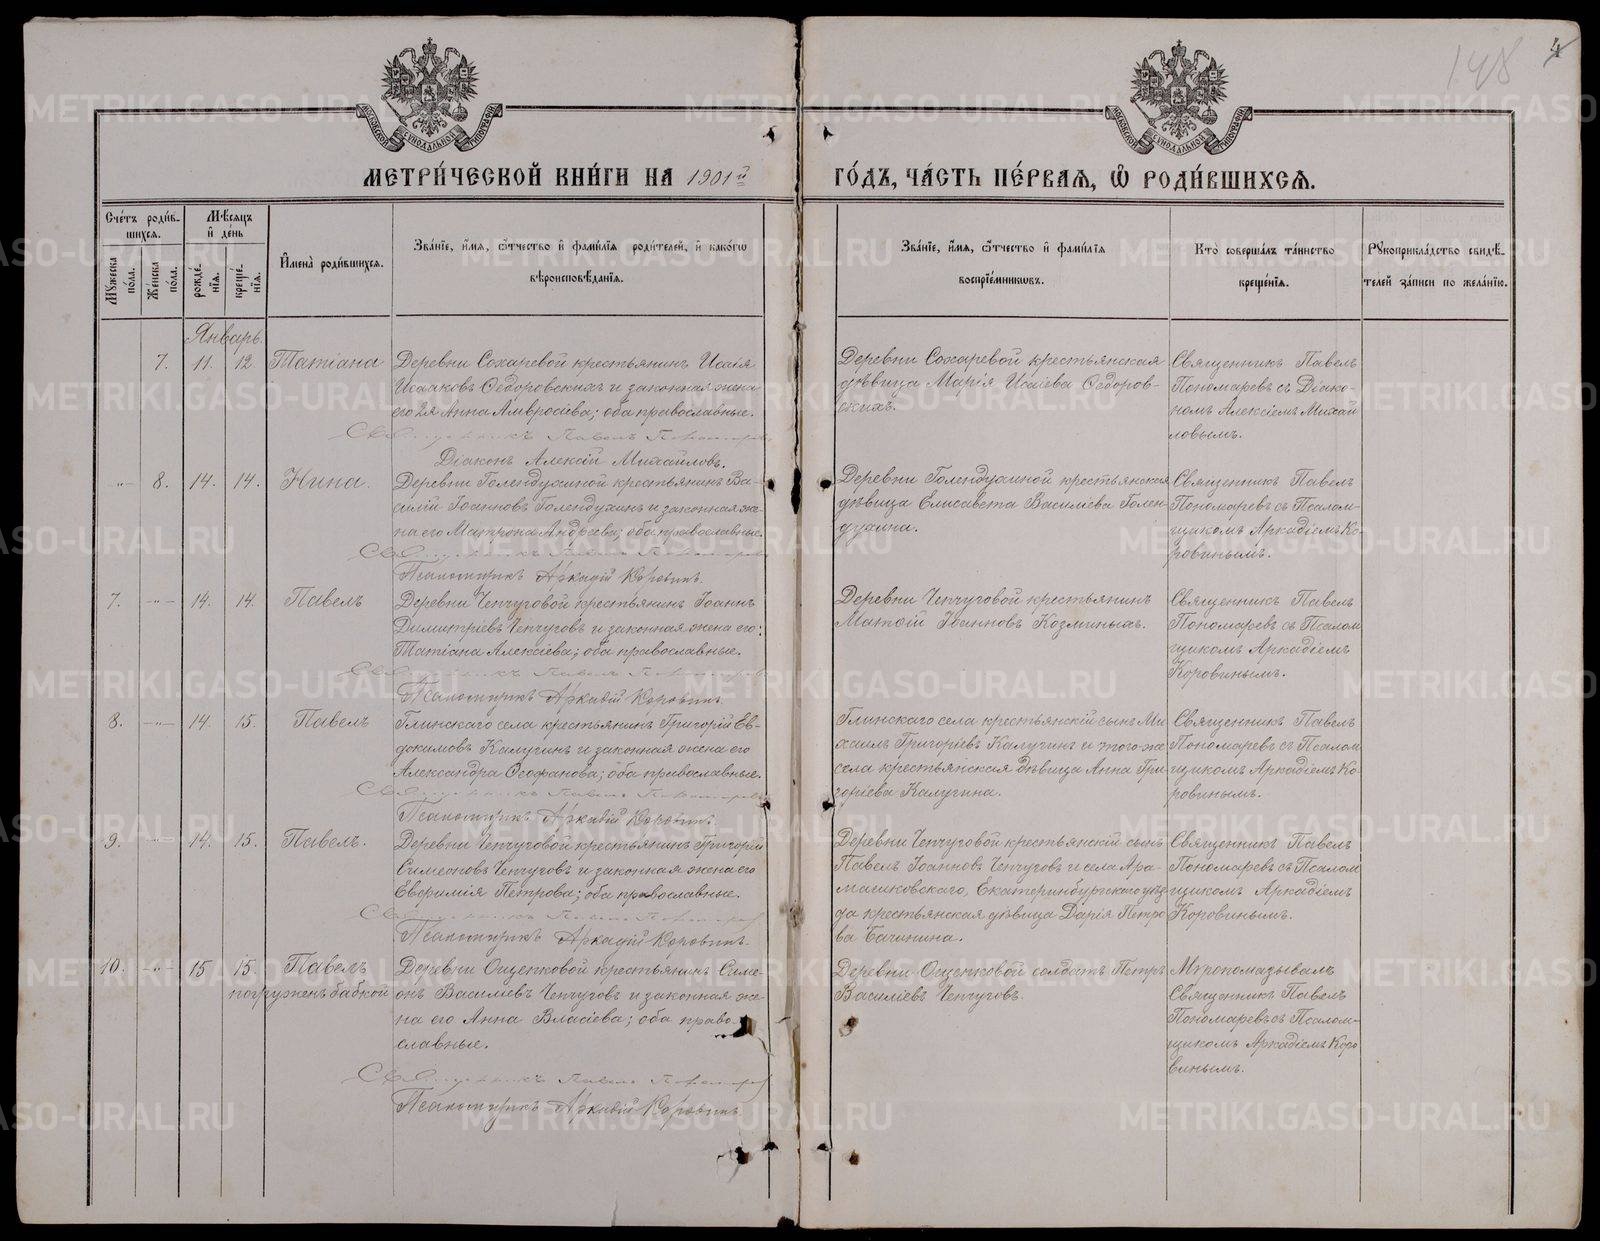 148
4
МОСКОВСКОЙ СѴНОДАЛЬНОЙ ТИПОГРАФІИ
МОСКОВСКОЙ СѴНОДАЛЬНОЙ ТИПОГРАФІИ
МЕТРИ́ЧЕСКОЙ КНИ́ГИ НА 1901й
ГО́ДЪ, ЧА́СТЬ ПЕ́РВАѦ, Ѡ РОДИ́ВШИХСѦ.
Сче́тъ роди́в-
шихсѧ.
Мꙋ́жеска по́ла.
Же́нска по́ла.
Мѣ́сѧцъ
и҆ де́нь
рожде́-
нїѧ.
креще́-
нїѧ.
И҆мена̀ роди́вшихсѧ.
Зва́нїе, и҆́мѧ, ѻ҆́тчество и҆ фами́лїѧ роди́телей, и҆ како́гѡ
вѣроисповѣ́данїѧ.
Зва́нїе, и҆́мѧ, ѻ҆́тчество и҆ фами́лїѧ
воспрїе́мникѡвъ.
Кто̀ соверша́лъ та́инство
креще́нїѧ.
Рꙋкоприкла́дство свидѣ́-
телей за́писи по жела́нїю.
Январь.
7. 11. 12. Татіана
Деревни Сохаревой крестьянинъ Исаія
Исааковъ Ѳедоровскихъ и законная жена
его 2я Анна Амвросіева; оба православные.
Священникъ Павелъ Пономаревъ
Діаконъ Алексій Михайловъ.
Деревни Сохаревой крестьянская
дѣвица Марія Исаіева Ѳедоров-
скихъ.
Священникъ Павелъ
Пономаревъ съ Діако-
номъ Алексіемъ Михай
ловымъ.
-„- 8. 14. 14. Нина.
Деревни Голендухиной крестьянинъ Ва-
силій Іоанновъ Голендухинъ и законная же-
на его Матрона Андреева; оба православные.
Священникъ Павелъ Пономаревъ
Псаломщикъ Аркадій Коровинъ.
Деревни Голендухиной крестьянская
дѣвица Елисавета Василіева Голен-
духина.
Священникъ Павелъ
Пономаревъ съ Псалом-
щикомъ Аркадіемъ Ко-
ровинымъ.
7. -„- 14. 14. Павелъ
Деревни Чепчуговой крестьянинъ Іоаннъ
Димитріевъ Чепчуговъ и законная жена его:
Татіана Алексіева; оба православные.
Священникъ Павелъ Пономаревъ
Псаломщикъ Аркадій Коровинъ.
Деревни Чепчуговой крестьянинъ
Матѳій Іоанновъ Козьминыхъ.
Священникъ Павелъ
Пономаревъ съ Псалом
щикомъ Аркадіемъ
Коровинымъ.
8. -„- 14. 15. Павелъ
Глинскаго села крестьянинъ Григорій Ев-
докимовъ Калугинъ и законная жена его
Александра Ѳеофанова; оба православные.
Священникъ Павелъ Пономаревъ
Псаломщикъ Аркадій Коровинъ.
Глинскаго села крестьянскій сынъ Ми-
хаилъ Григоріевъ Калугинъ и того-же
села крестьянская дѣвица Анна Гри-
горіева Калугина.
Священникъ Павелъ
Пономаревъ съ Псалом
щикомъ Аркадіемъ Ко-
ровинымъ.
9. -„- 14. 15. Павелъ.
Деревни Чепчуговой крестьянинъ Григорій
Симеоновъ Чепчуговъ и законная жена его
Евфимія Петрова; оба православные.
Священникъ Павелъ Пономаревъ
Псаломщикъ Аркадій Коровинъ.
Деревни Чепчуговой крестьянскій сынъ
Павелъ Іоанновъ Чепчуговъ и села Ара-
машковскаго, Екатеринбургскаго уѣз-
да крестьянская дѣвица Дарія Петро
ва Бачинина.
Священникъ Павелъ
Пономаревъ съ Псалом
щикомъ Аркадіемъ
Коровинымъ.
10. -„- 15 15. Павелъ
погруженъ бабкой
Деревни Ощепковой крестьянинъ Симе-
онъ Василіевъ Чепчуговъ и законная же-
на его Анна Власіева; оба право-
славные.
Священникъ Павелъ Пономаревъ
Псаломщикъ Аркадій Коровинъ.
Деревни Ощепковой солдатъ Петръ
Василіевъ Чепчуговъ.
Мѵропомазывалъ
Священникъ Павелъ
Пономаревъ съ Псалом-
щикомъ Аркадіемъ Коро
винымъ.
METRIKI.GASO-URAL.RU